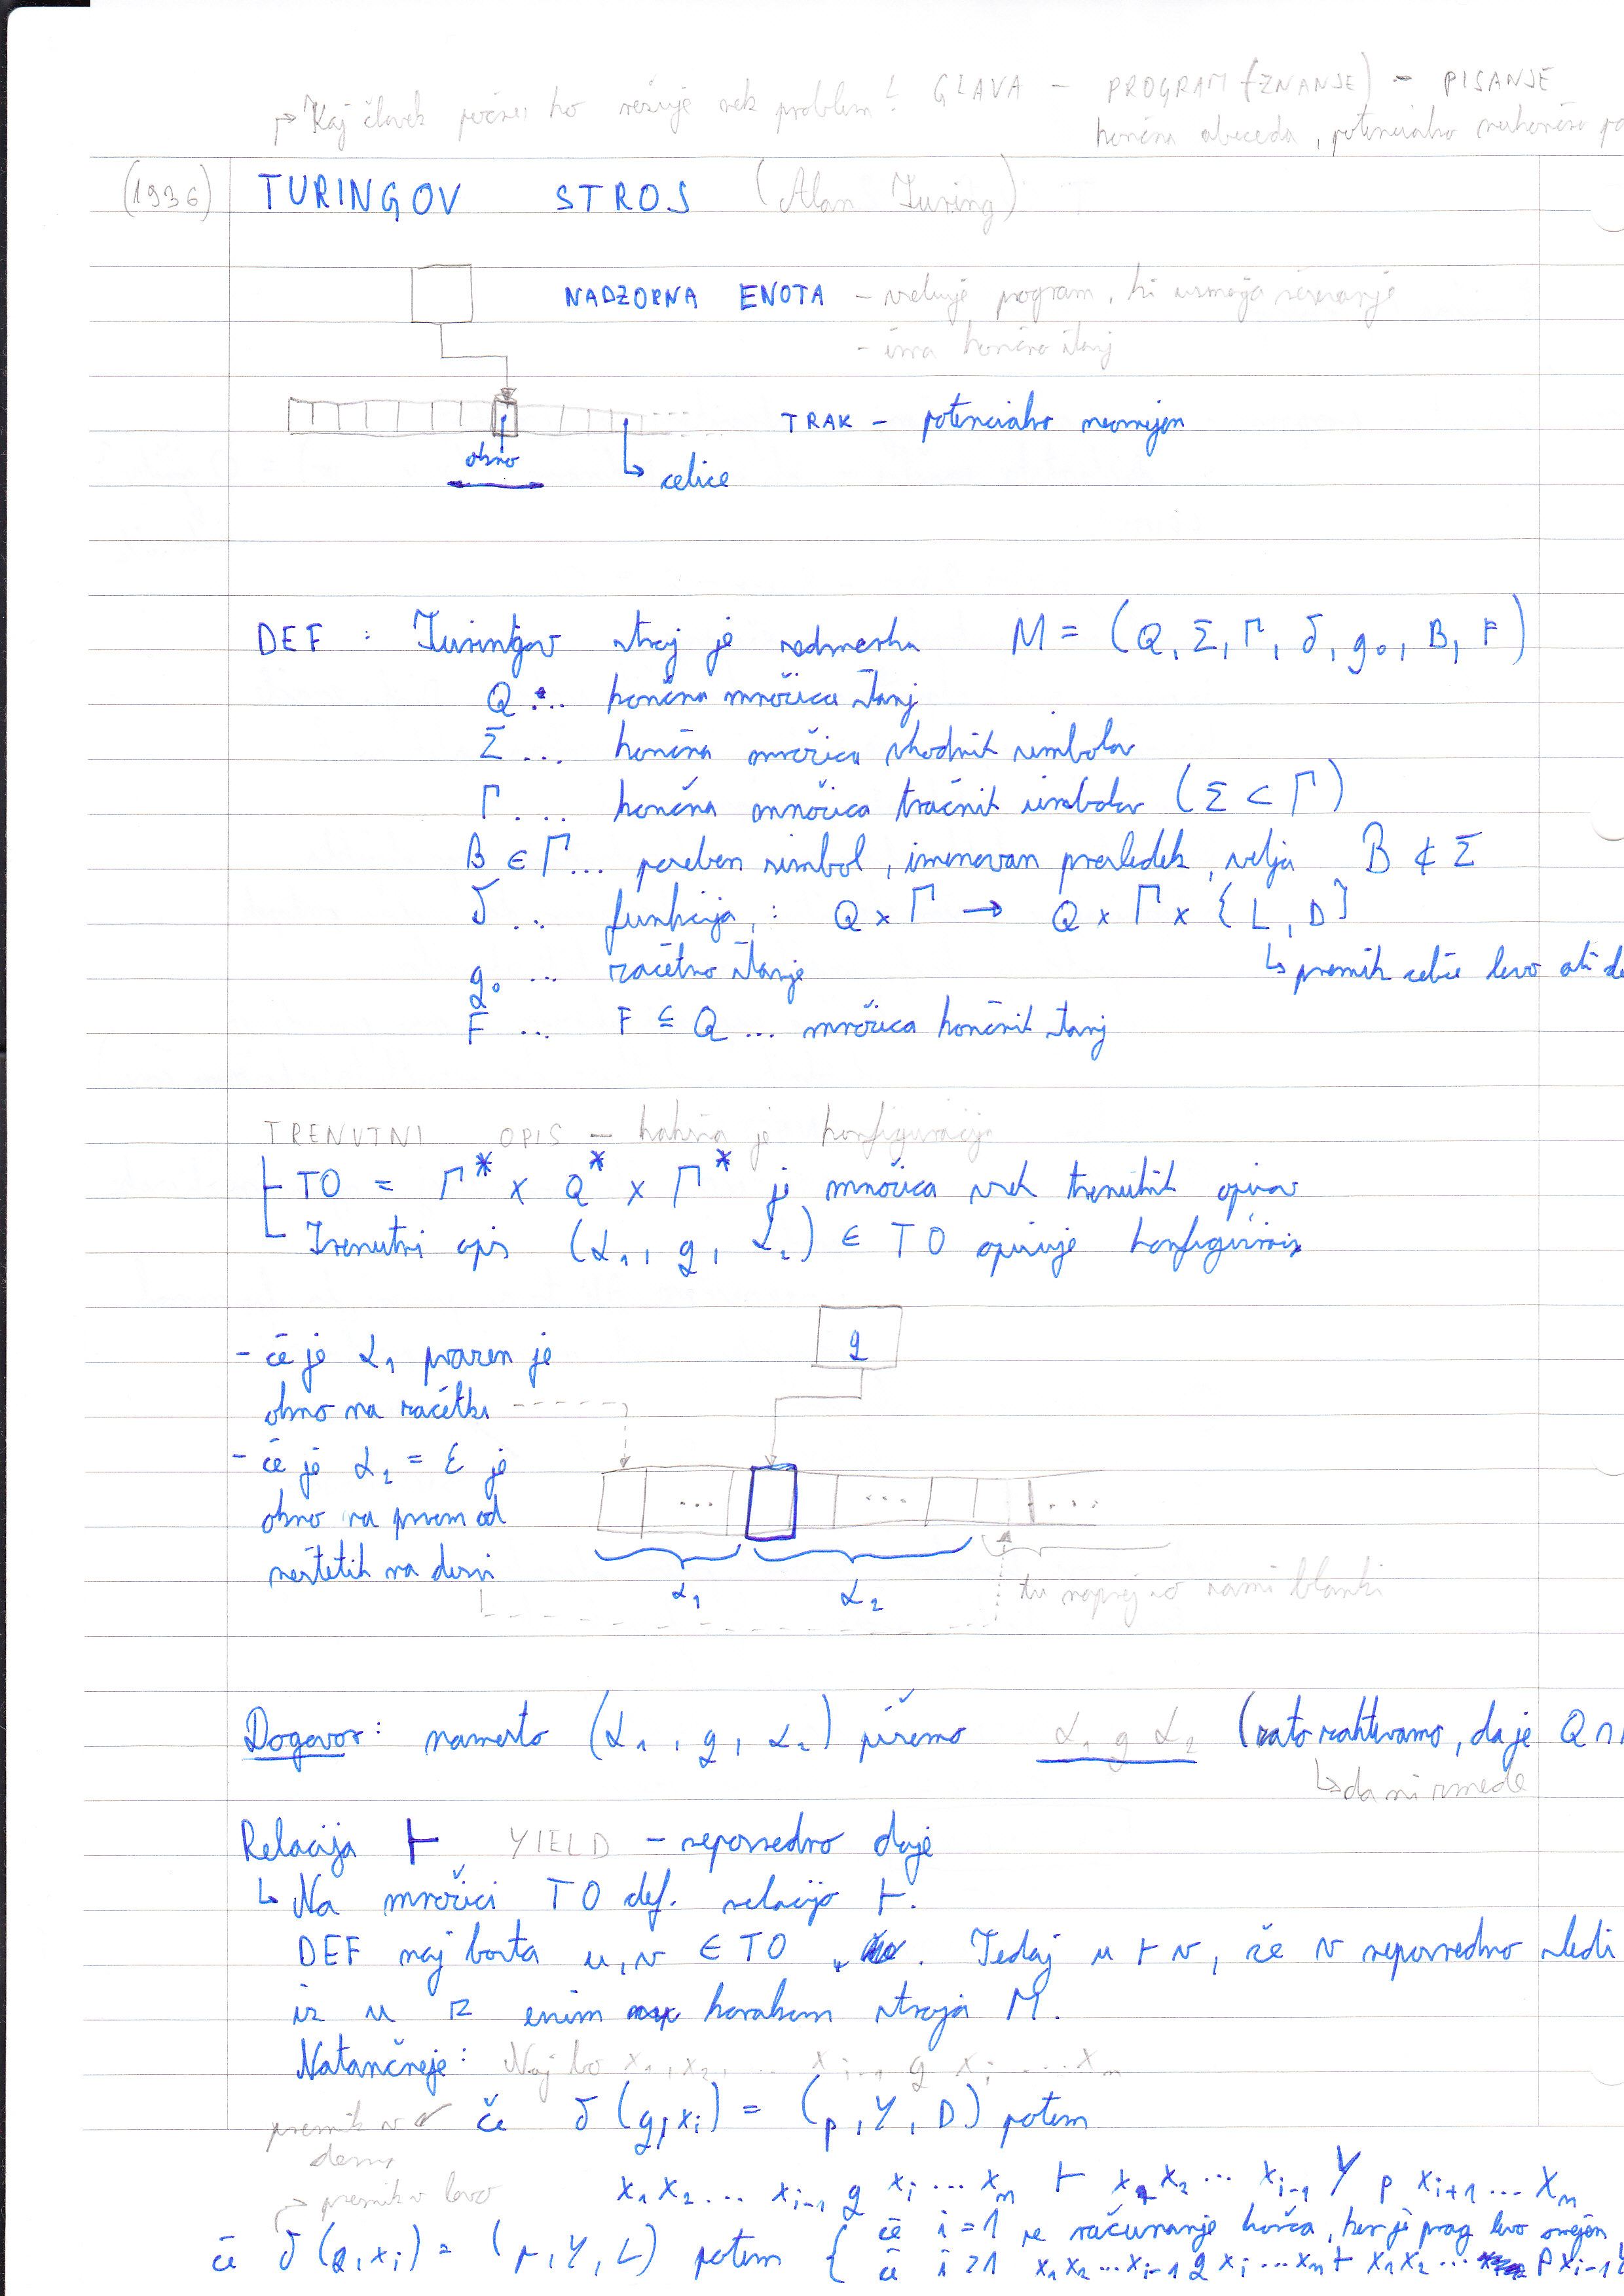 → Kaj človek počne, ko rešuje nek problem? GLAVA - PROGRAM (ZNANJE) - PISANJE
končna abeceda, potencialno neskončno
(1936) TURINGOV STROJ (Alan Turing)
NADZORNA ENOTA - vsebuje program, ki usmerja računanje
- ima končno stanj
TRAK - potencialno neomejen
okno
↳ celice
DEF : Turingov stroj je sedmerka M = (Q, Σ, Γ, δ, q₀, B, F)
Q ... končna množica stanj
Σ ... končna množica vhodnih simbolov
Γ ... končna množica tračnih simbolov (Σ ⊂ Γ)
B ∈ Γ... poseben simbol, imenovan presledek, velja B ∉ Σ
δ ... funkcija : Q × Γ → Q × Γ × {L, D}
q₀ ... začetno stanje ↳ premik celice levo ali de
F ... F ⊆ Q ... množica končnih stanj
TRENUTNI OPIS - kakšna je konfiguracija
TO = Γ* × Q* × Γ* je množica vseh trenutnih opisov
Trenutni opis (α₁, q, α₂) ∈ TO opisuje
q
- če je α₁ prazen je
okno na začetku
- če je α₂ = ε je
okno na prvem od
na desni
... ... ...
α₁ α₂ tu naprej so sami blanki
Dogovor: namesto (α₁, q, α₂) pišemo α₁ q α₂ (zato zahtevamo, da je Q ∩
↳ da ni zmede
Relacija ⊢ YIELD - neposredno daje
↳ Na množici TO def. relacijo ⊢.
DEF naj bosta u, v ∈ TO . Tedaj u ⊢ v, če v neposredno sledi
iz u z enim korakom stroja M.
Natančneje: Naj bo x₁, x₂, ... xᵢ₋₁ q xᵢ ... xₙ
premik v desno če δ(q, xᵢ) = (p, Y, D) potem
x₁ x₂ ... xᵢ₋₁ q xᵢ ... xₙ ⊢ x₁ x₂ ... xᵢ₋₁ Y p xᵢ₊₁ ... xₙ
→ premik v levo
če δ(q, xᵢ) = (p, Y, L) potem { če i = 1 se računanje konča, ker je levo omejen
če i > 1 x₁ x₂ ... xᵢ₋₁ q xᵢ ... xₙ ⊢ x₁ x₂ ... p xᵢ₋₁